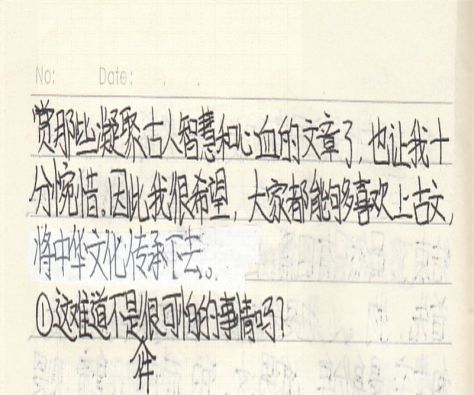 No: Date:
赏那些凝聚古人智慧和心血的文章了,也让我十
分惋惜。因此我很希望,大家都能够多喜欢上古文,
将中华文化传承下去。
①这难道不是很可怕的事情吗?
件